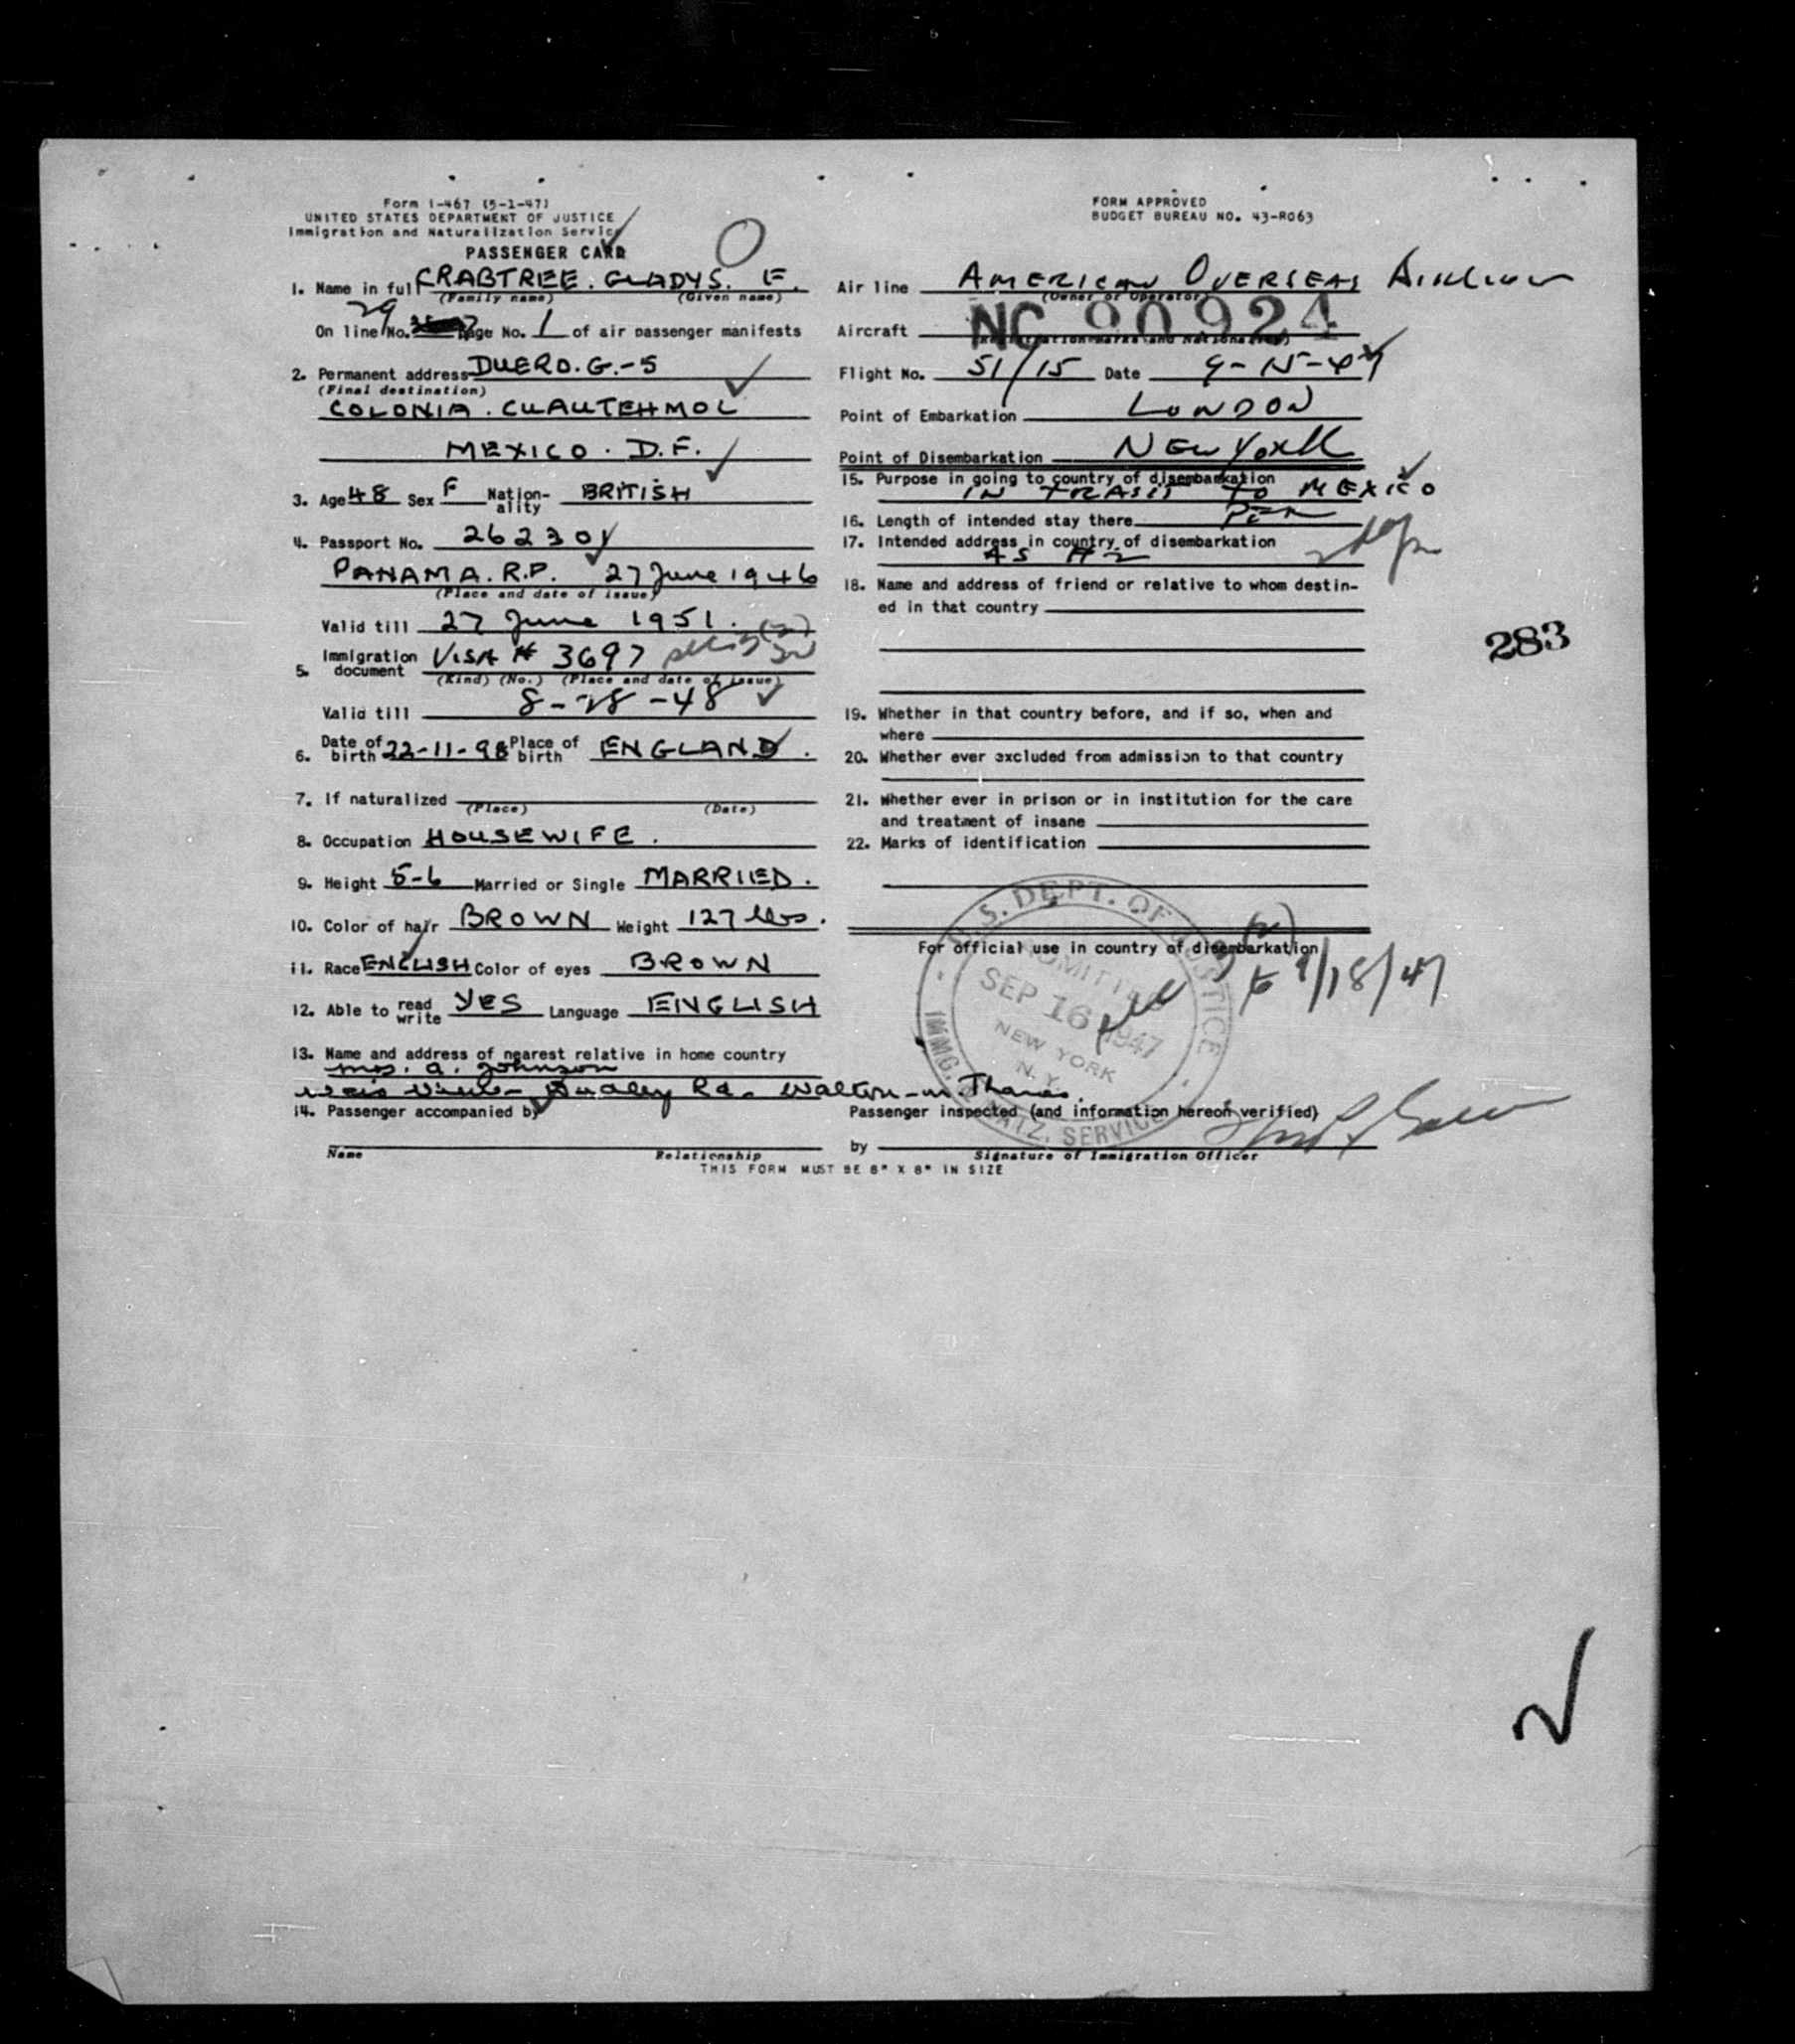 Form I-467 (5-1-47)
UNITED STATES DEPARTMENT OF JUSTICE
Immigration and Naturalization Service
PASSENGER CARD
FORM APPROVED
BUDGET BUREAU NO. 43-R063
1. Name in full CRABTREE. GLADYS. E.
(Family name) (Given name)
29
On line No. Page No. 1 of air passenger manifests
2. Permanent address DUERO. G.-5
(Final destination)
COLONIA. CUAUTEHMOL
MEXICO. D.F.
3. Age 48 Sex F Nationality BRITISH
4. Passport No. 262301
PANAMA. R.P. 27 June 1946
(Place and date of issue)
Valid till 27 June 1951.
5. Immigration document VISA # 3697
(Kind) (No.) (Place and date of issue)
Valid till 8-28-48
6. Date of birth 22-11-98 Place of birth ENGLAND.
7. If naturalized
(Place) (Date)
8. Occupation HOUSEWIFE.
9. Height 5-6 Married or Single MARRIED.
10. Color of hair BROWN Weight 127 lbs.
11. Race ENGLISH Color of eyes BROWN
12. Able to read write YES Language ENGLISH
13. Name and address of nearest relative in home country
Mrs. A. Johnson
Dudley Rd. Walton-on-Thames.
14. Passenger accompanied by
Name Relationship
Air line AMERICAN OVERSEAS AIRLINES
(Owner or Operator)
Aircraft NC 90924
(Registration marks and Nationality)
Flight No. 51/15 Date 9-15-47
Point of Embarkation LONDON
Point of Disembarkation NEW YORK
15. Purpose in going to country of disembarkation
IN TRASIT TO MEXICO
16. Length of intended stay there
17. Intended address in country of disembarkation
AS #2
18. Name and address of friend or relative to whom destin-
ed in that country
283
19. Whether in that country before, and if so, when and
where
20. Whether ever excluded from admission to that country
21. Whether ever in prison or in institution for the care
and treatment of insane
22. Marks of identification
For official use in country of disembarkation
U.S. DEPT. OF JUSTICE
ADMITTED
SEP 16 1947
NEW YORK
N.Y.
IMMIG. & NATZ. SERVICE
9/18/47
Passenger inspected (and information hereon verified)
by
Signature of Immigration Officer
THIS FORM MUST BE 8" X 8" IN SIZE